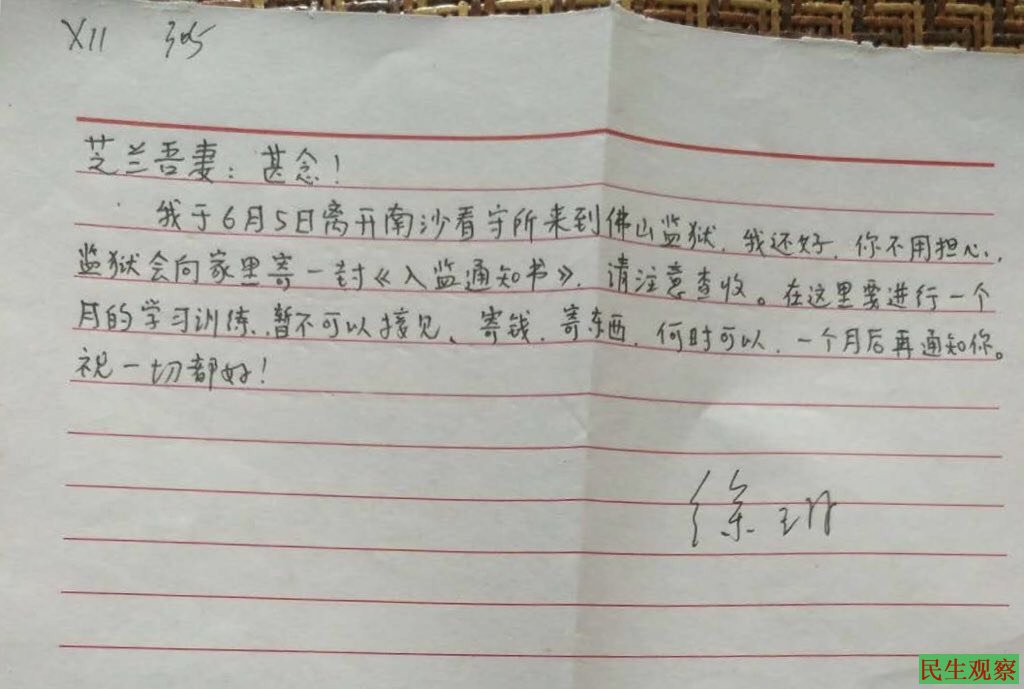 XII
芝兰吾妻：甚念！
我于6月5日离开南沙看守所来到佛山监狱，我还好，你不用担心，
监狱会向家里寄一封《入监通知书》，请注意查收。在这里要进行一个
月的学习训练，暂不可以接见、寄钱、寄东西，何时可以，一个月后再通知你。
祝一切都好！
徐琳
民生观察